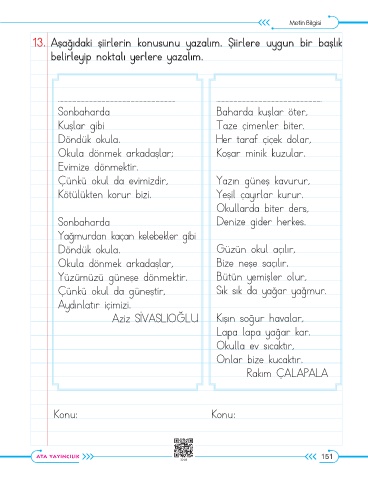 Metin Bilgisi
13. Aşağıdaki şiirlerin konusunu yazalım. Şiirlere uygun bir başlık
belirleyip noktalı yerlere yazalım.
Sonbaharda
Kuşlar gibi
Döndük okula.
Okula dönmek arkadaşlar;
Evimize dönmektir.
Çünkü okul da evimizdir,
Kötülükten korur bizi.
Sonbaharda
Yağmurdan kaçan kelebekler gibi
Döndük okula.
Okula dönmek arkadaşlar,
Yüzümüzü güneşe dönmektir.
Çünkü okul da güneştir,
Aydınlatır içimizi.
Aziz SİVASLIOĞLU
Baharda kuşlar öter,
Taze çimenler biter.
Her taraf çiçek dolar,
Koşar minik kuzular.
Yazın güneş kavurur,
Yeşil çayırlar kurur.
Okullarda biter ders,
Denize gider herkes.
Güzün okul açılır,
Bize neşe saçılır.
Bütün yemişler olur,
Sık sık da yağar yağmur.
Kışın soğur havalar,
Lapa lapa yağar kar.
Okulla ev sıcaktır,
Onlar bize kucaktır.
Rakım ÇALAPALA
Konu:
Konu:
ATA YAYINCILIK
151